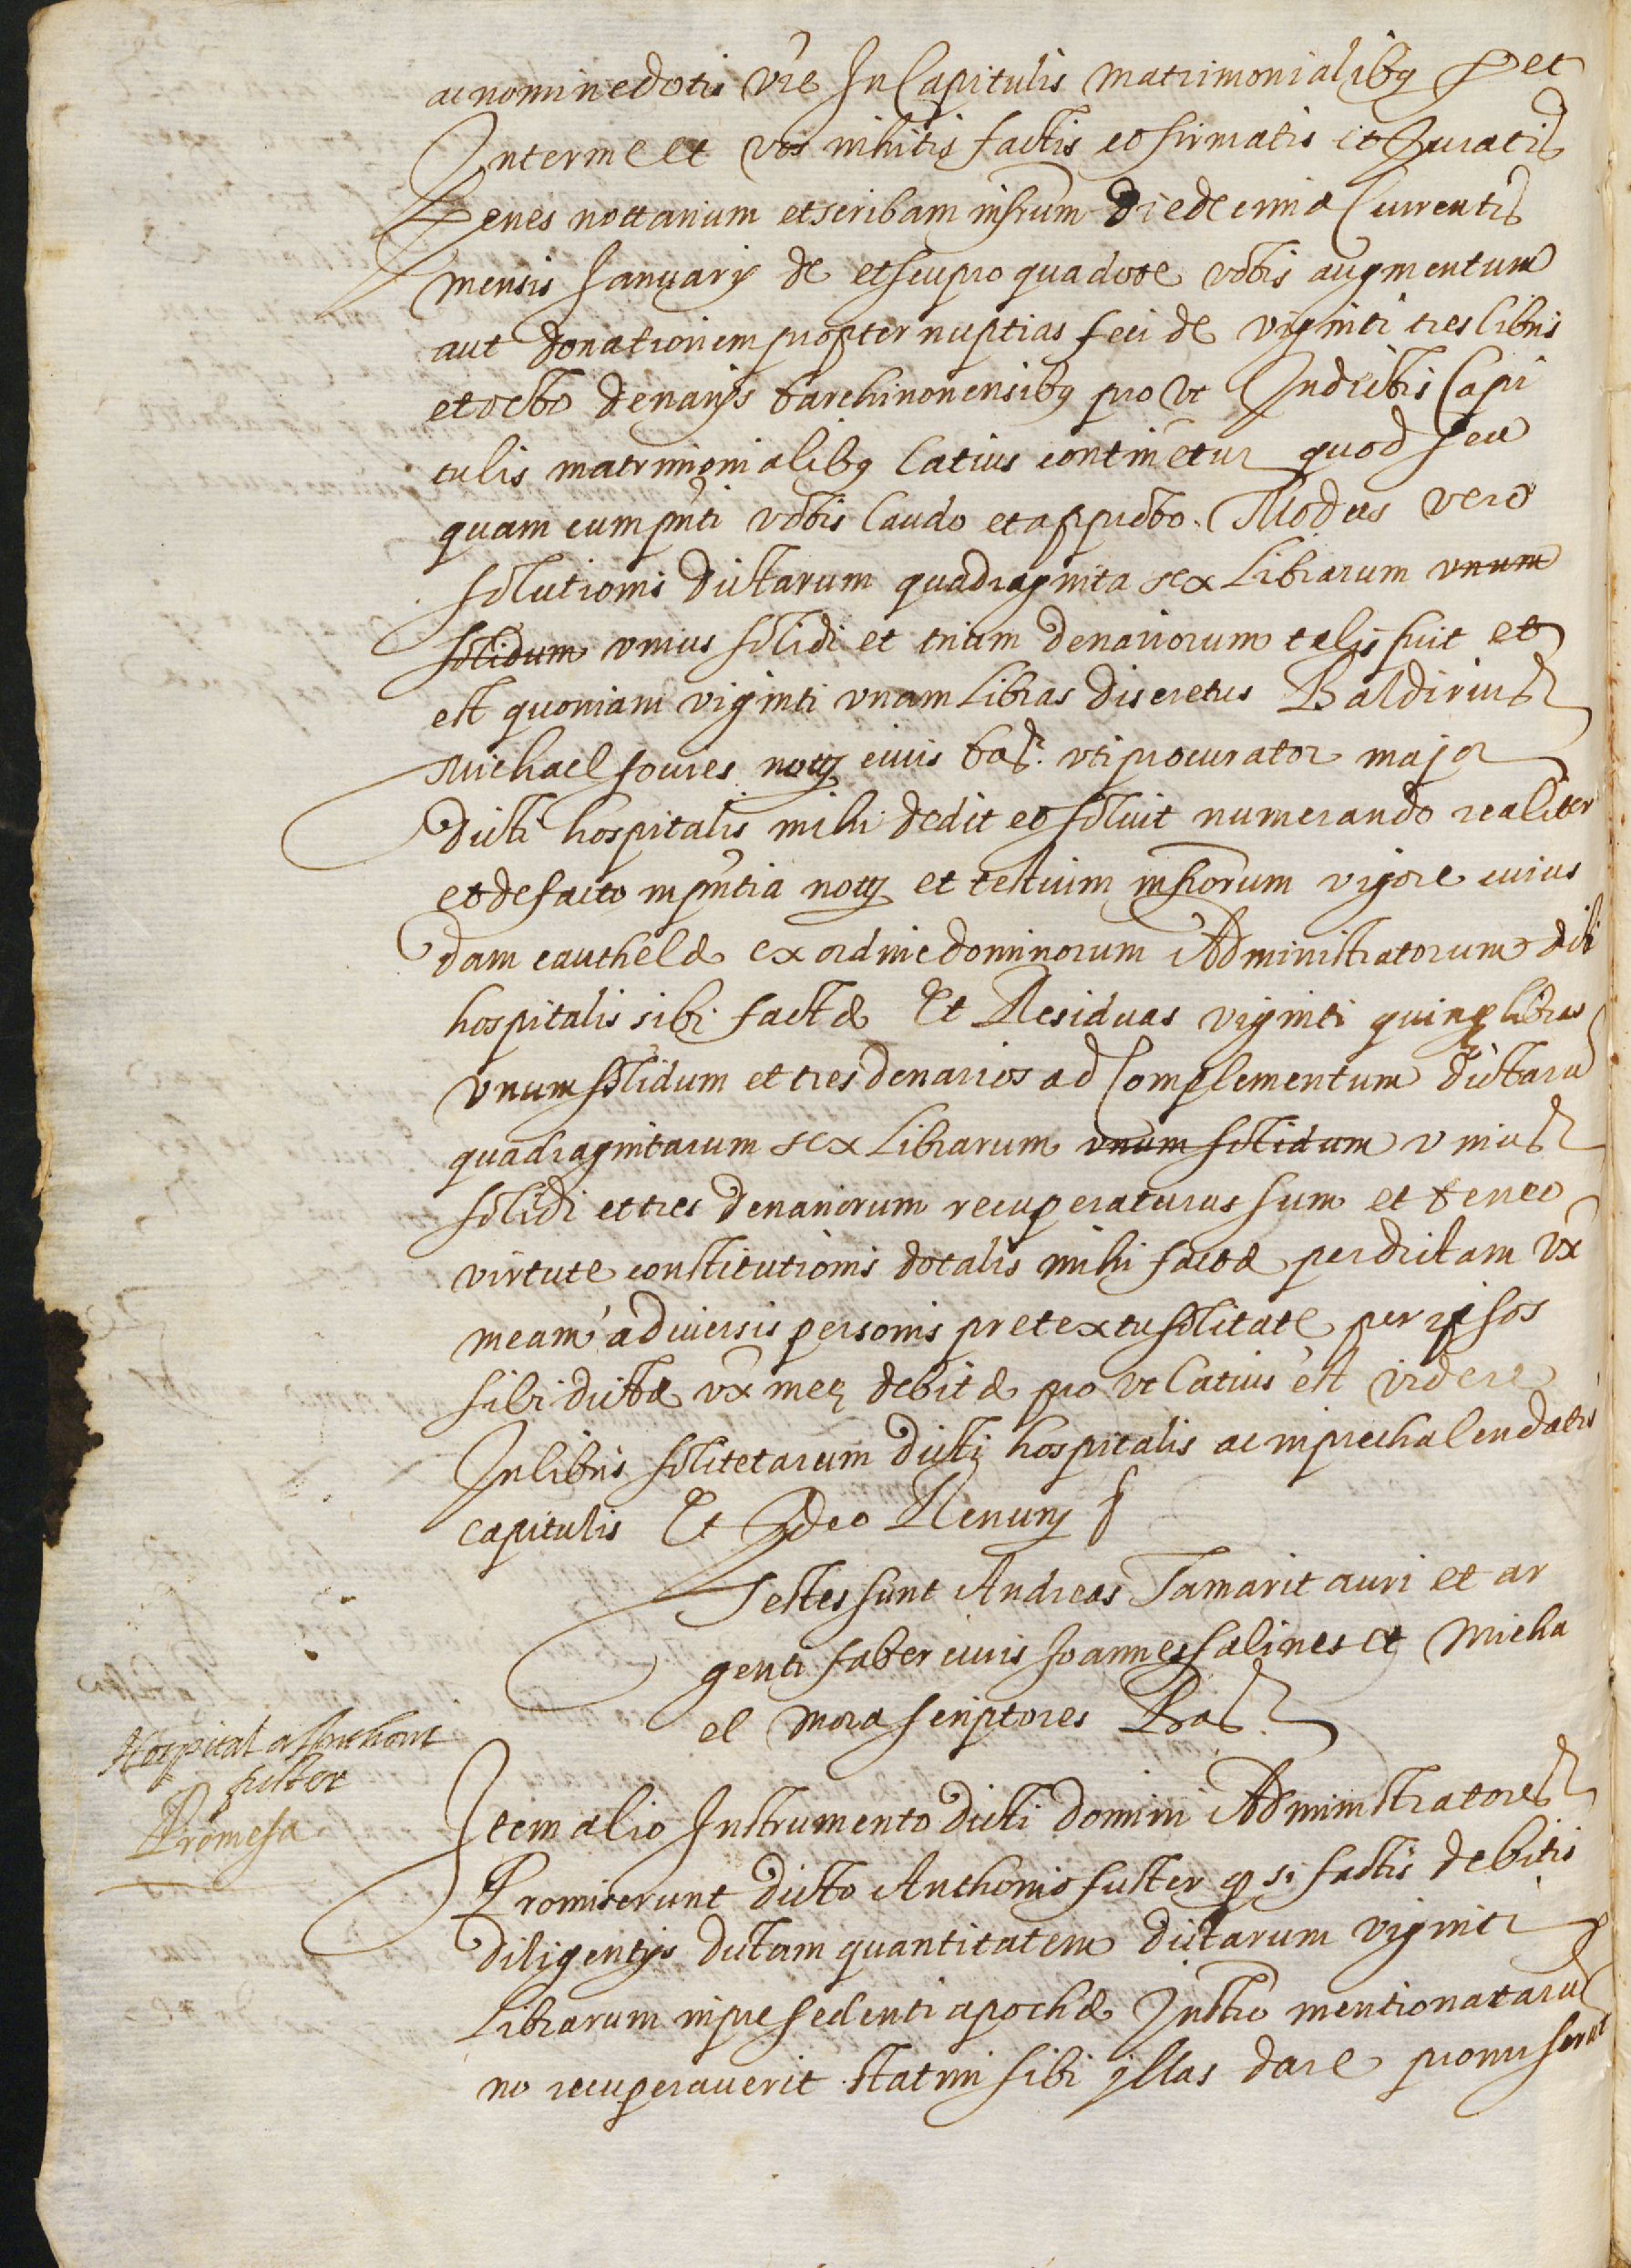 ac nomine dotis vre In Capitulis matrimonialibq per et
Inter me et vos inhitis factis et firmatis et Juratis
Penes nottarium et scribam infrum die decima Currentis
mensis Januarij de et seu pro qua dote vobis augmentum
aut donationem propter nuptias feci de viginti tres libris
et octo denarijs barchinonensibq pro vt In dictis Capi
tulis matrimonialibq latius continetur quod seu
quam cum pnti vobis laudo et approbo. Modus vero
solutionis dictarum quadraginta sex Librarum vnum
solidum vnius solidi et trium denariorum talis fuit et
est quoniam viginti vnam Libras discretus Baldirius
Michael foures notq ciuis bar. vti procurator major
dicti hospitalis mihi dedit et soluit numerando realiter
et de facto in pntia notq et testium infrorum vigore cuius
dam cauthelæ ex ordine dominorum Administratorum dicti
hospitalis sibi factæ Et Residuas viginti quinq libras
vnum solidum et tres denarios ad Complementum dictaru
quadragintarum sex Librarum vnum solidum vnius
solidi et tres denariorum recuperaturus sum et teneo
virtute constitutionis dotalis mihi factæ per dictam vx
meam a diuersis personis pretextu solitate per ipsos
sibi dictæ vx meę debitæ pro vt latius est videre
In libris solitetarum dicti hospitalis ac in prechalendatis
capitulis Et Ideo Renunj
Testes sunt Andreas Tamarit auri et ar
genti faber ciuis Joannes salines et Micha
el Mora scriptores Bar
Hospital a Anthoni
fuster
Promesa
Item alio Instrumento dicti domini Administratores
Promiserunt dicto Anthonio fuster q si factis debitis
diligentijs dictam quantitatem dictarum viginti
Librarum in presedenti apochæ Instro mentionataru
no recuperauerit statim sibi yllas dare promiserut